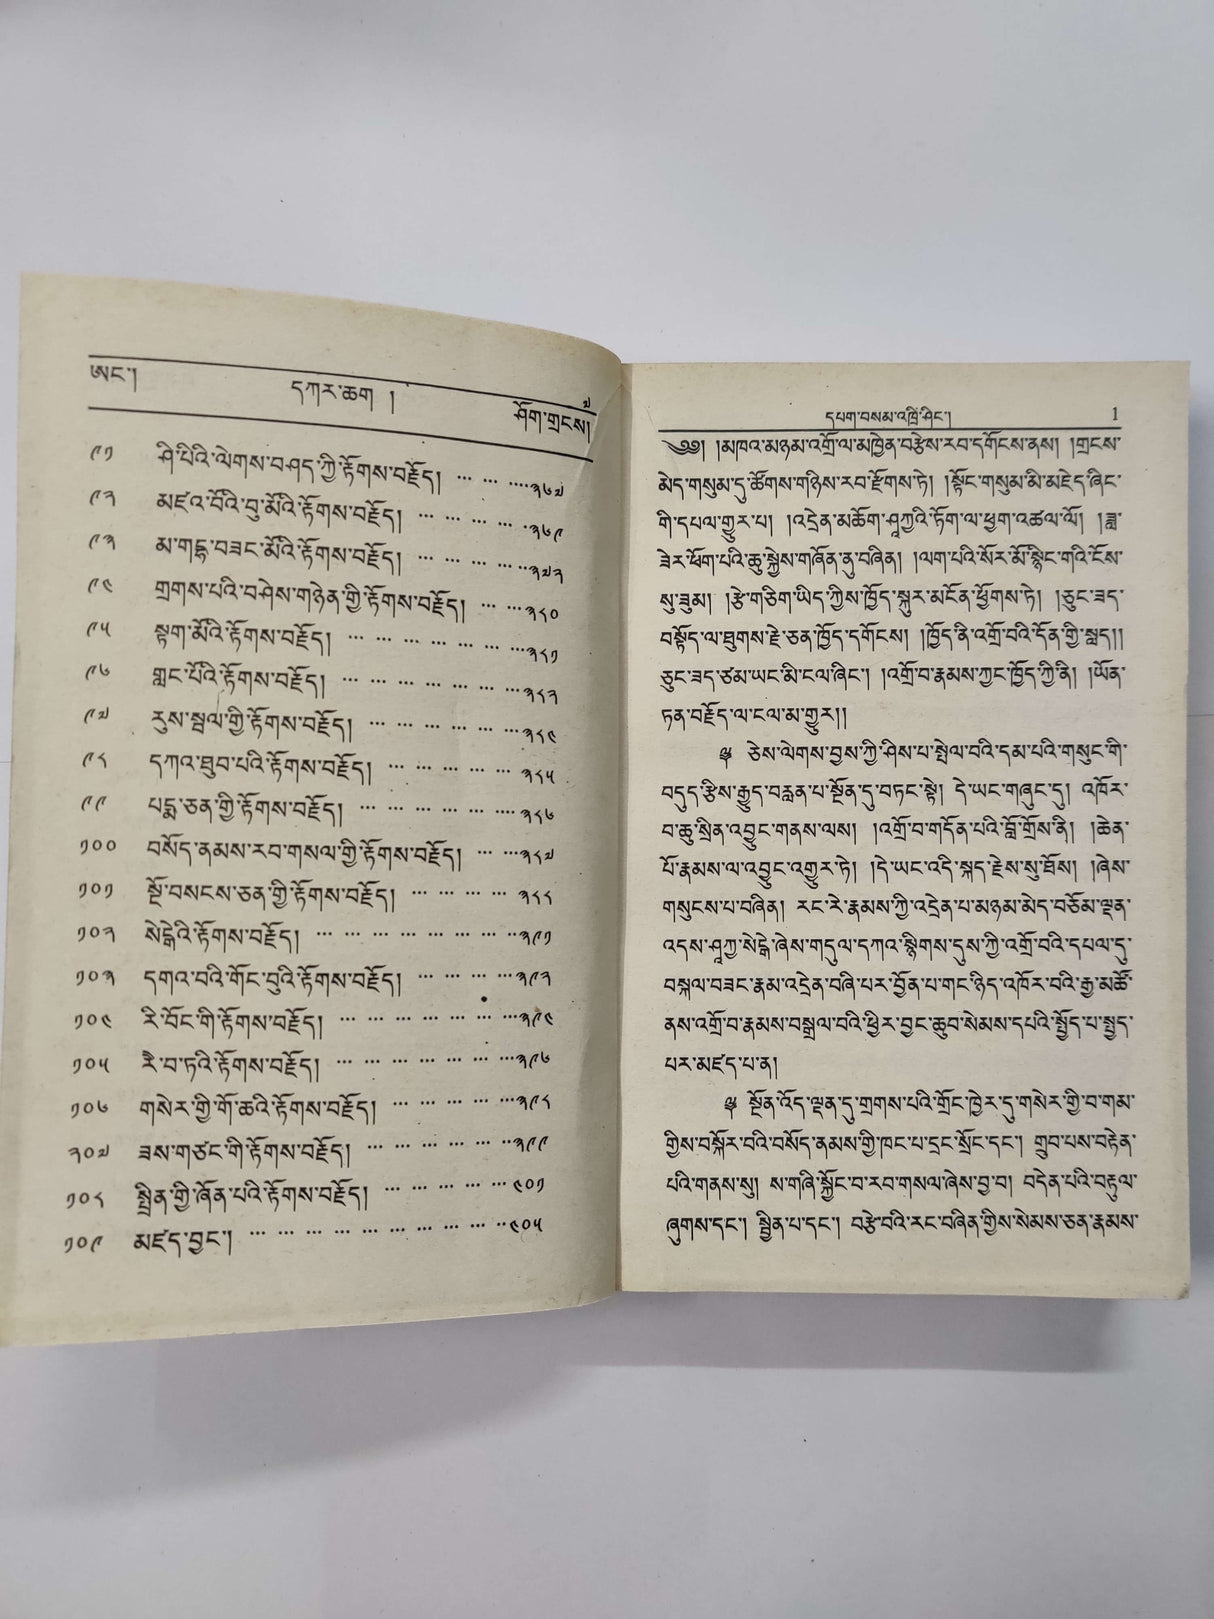 ༧
ཨང་། དཀར་ཆག ། ཤོག་གྲངས།
༩༡ ཤི་པིའི་ལེགས་བཤད་ཀྱི་རྟོགས་བརྗོད། ... ... ....༣༦༧
༩༢ མཛའ་བོའི་བུ་མོའི་རྟོགས་བརྗོད། ... ... ... ... ...༣༦༩
༩༣ མ་གདྷ་བཟང་མོའི་རྟོགས་བརྗོད། ... ... ... ...༣༧༢
༩༤ གྲགས་པའི་བཤེས་གཉེན་གྱི་རྟོགས་བརྗོད། ... ...༣༨༠
༩༥ སྟག་མོའི་རྟོགས་བརྗོད། ... ... ... ... ... ... ...༣༨༡
༩༦ གླང་པོའི་རྟོགས་བརྗོད། ... ... ... ... ... ... ...༣༨༢
༩༧ རུས་སྦལ་གྱི་རྟོགས་བརྗོད། ... ... ... ... ... ...༣༨༤
༩༨ དཀའ་ཐུབ་པའི་རྟོགས་བརྗོད། ... ... ... ... ...༣༨༥
༩༩ པདྨ་ཅན་གྱི་རྟོགས་བརྗོད། ... ... ... ... ... ...༣༨༦
༡༠༠ བསོད་ནམས་རབ་གསལ་གྱི་རྟོགས་བརྗོད། ... ...༣༨༧
༡༠༡ སྔོ་བསངས་ཅན་གྱི་རྟོགས་བརྗོད། ... ... ... ...༣༨༨
༡༠༢ སེངྒེའི་རྟོགས་བརྗོད། ... ... ... ... ... ... ... ...༣༩༡
༡༠༣ དགའ་བའི་གོང་བུའི་རྟོགས་བརྗོད། ... ... ... ...༣༩༢
༡༠༤ རི་བོང་གི་རྟོགས་བརྗོད། ... ... ... ... ... ... ...༣༩༤
༡༠༥ རེ་བ་ཏའི་རྟོགས་བརྗོད། ... ... ... ... ... ... ...༣༩༦
༡༠༦ གསེར་གྱི་གོ་ཆའི་རྟོགས་བརྗོད། ... ... ... ... ...༣༩༨
༢༠༧ ཟས་གཙང་གི་རྟོགས་བརྗོད། ... ... ... ... ... ...༣༩༩
༡༠༨ སྤྲིན་གྱི་ཞོན་པའི་རྟོགས་བརྗོད། ... ... ... ... ...༤༠༡
༡༠༩ མཛད་བྱང་། ... ... ... ... ... ... ... ... ... ..༤༠༥
དཔག་བསམ་འཁྲི་ཤིང་། 1
༄༅། །མཁའ་མཉམ་འགྲོ་ལ་མཁྱེན་བརྩེས་རབ་དགོངས་ནས། །གྲངས་
མེད་གསུམ་དུ་ཚོགས་གཉིས་རབ་རྫོགས་ཏེ། །སྟོང་གསུམ་མི་མཇེད་ཞིང་
གི་དཔལ་གྱུར་པ། །འདྲེན་མཆོག་ཤཱཀྱའི་ཏོག་ལ་ཕྱག་འཚལ་ལོ། །ཟླ་
ཟེར་ཕོག་པའི་ཆུ་སྐྱེས་གཞོན་ནུ་བཞིན། །ལག་པའི་སོར་མོ་སྙིང་གའི་ངོས་
སུ་ཟུམ། །རྩེ་གཅིག་ཡིད་ཀྱིས་ཁྱོད་སྐུར་མངོན་ཕྱོགས་ཏེ། །ཅུང་ཟད་
བསྟོད་ལ་ཐུགས་རྗེ་ཅན་ཁྱོད་དགོངས། །ཁྱོད་ནི་འགྲོ་བའི་དོན་གྱི་སླད།།
ཅུང་ཟད་ཙམ་ཡང་མི་ངལ་ཞིང་། །འགྲོ་བ་རྣམས་ཀྱང་ཁྱོད་ཀྱི་ནི། །ཡོན་
ཏན་བརྗོད་ལ་ངལ་མ་གྱུར།།
༈ ཅེས་ལེགས་བྱས་ཀྱི་ཤིས་པ་སྤེལ་བའི་དམ་པའི་གསུང་གི་
བདུད་རྩིས་རྒྱུད་བརླན་པ་སྔོན་དུ་བཏང་སྟེ། དེ་ཡང་གཞུང་དུ། འཁོར་
བ་ཆུ་སྲིན་འབྱུང་གནས་ལས། །འགྲོ་བ་གདོན་པའི་བློ་གྲོས་ནི། །ཆེན་
པོ་རྣམས་ལ་འབྱུང་འགྱུར་ཏེ། །དེ་ཡང་འདི་སྐད་རྗེས་སུ་ཐོས། །ཞེས་
གསུངས་པ་བཞིན། རང་རེ་རྣམས་ཀྱི་འདྲེན་པ་མཉམ་མེད་བཅོམ་ལྡན་
འདས་ཤཱཀྱ་སེངྒེ་ཞེས་གདུལ་དཀའ་སྙིགས་དུས་ཀྱི་འགྲོ་བའི་དཔལ་དུ་
བསྐལ་བཟང་རྣམ་འདྲེན་བཞི་པར་བྱོན་པ་གང་ཉིད་འཁོར་བའི་རྒྱ་མཚོ་
ནས་འགྲོ་བ་རྣམས་བསྒྲལ་བའི་ཕྱིར་བྱང་ཆུབ་སེམས་དཔའི་སྤྱོད་པ་སྤྱད་
པར་མཛད་པ་ན།
༈ སྔོན་འོད་ལྡན་དུ་གྲགས་པའི་གྲོང་ཁྱེར་དུ་གསེར་གྱི་བ་གམ་
གྱིས་བསྐོར་བའི་བསོད་ནམས་ཀྱི་ཁང་པ་དྲང་སྲོང་དང་། གྲུབ་པས་བརྟེན་
པའི་གནས་སུ། ས་གཞི་སྐྱོང་བ་རབ་གསལ་ཞེས་བྱ་བ། བདེན་པའི་བརྟུལ་
ཞུགས་དང་། སྦྱིན་པ་དང་། བརྩེ་བའི་རང་བཞིན་གྱིས་སེམས་ཅན་རྣམས་